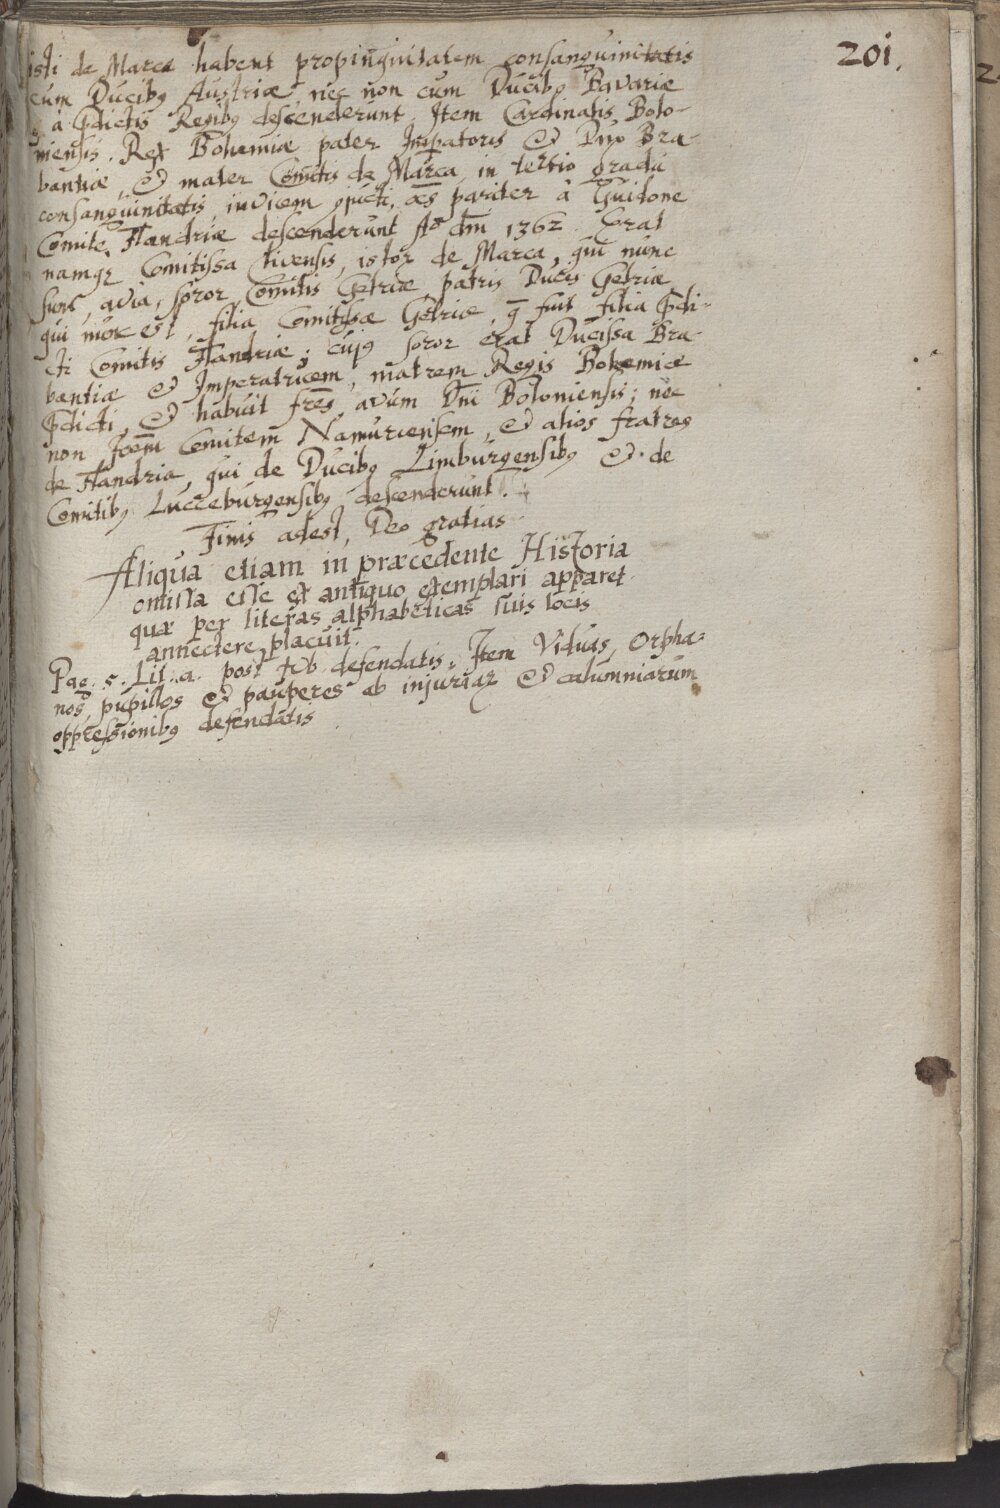 201.
isti de Marca habent propinquitatem consanguinitatis
cum Ducibꝰ Austriæ, nec non cum Ducibꝰ Bavariæ
à p̄dictis Regibꝰ descenderunt. Item Cardinalis Bolo-
niensis. Rex Bohemiæ pater Imp̄atoris & Dux Bra-
bantiæ, & mater Comitis de Marca, in tertio gradu
consanguinitatis invicem ꝯjūcti, oēs pariter à Guidone
Comite Flandriæ descenderunt Aº dm̄ 1362. Erat
namqꝫ Comitissa Clivensis, istoꝝ de Marca, qui nunc
sunt, avia, soror Comitis Gelriæ patris Ducis Gelriæ
qui nunc est, filia Comitissæ Gelriæ, q̄ fuit filia p̄di-
cti Comitis Flandriæ; cujꝰ soror erat Ducissa Bra-
bantiæ & Imperatricem, matrem Regis Bohemiæ
p̄dicti, & habuit frēs, avum Dn̄i Boloniensis; nec
non Comitem Namurcensem, & alios fratres
de Flandria, qui de Ducibꝰ Limburgensibꝰ & de
Comitibꝰ Lucceburgensibꝰ descenderunt.
Finis adest, Deo gratias
Aliqua etiam in præcedente Historia
omissa esse ex antiquo exemplari apparet.
quæ per literas alphabeticas suis locis
annectere placuit.
Pag. 5. Lit. a. post defendatis. Item Viduas, Orpha-
nos, pupillos & pauperes ab injuriaꝝ & calumniarum
oppressionibꝰ defendatis